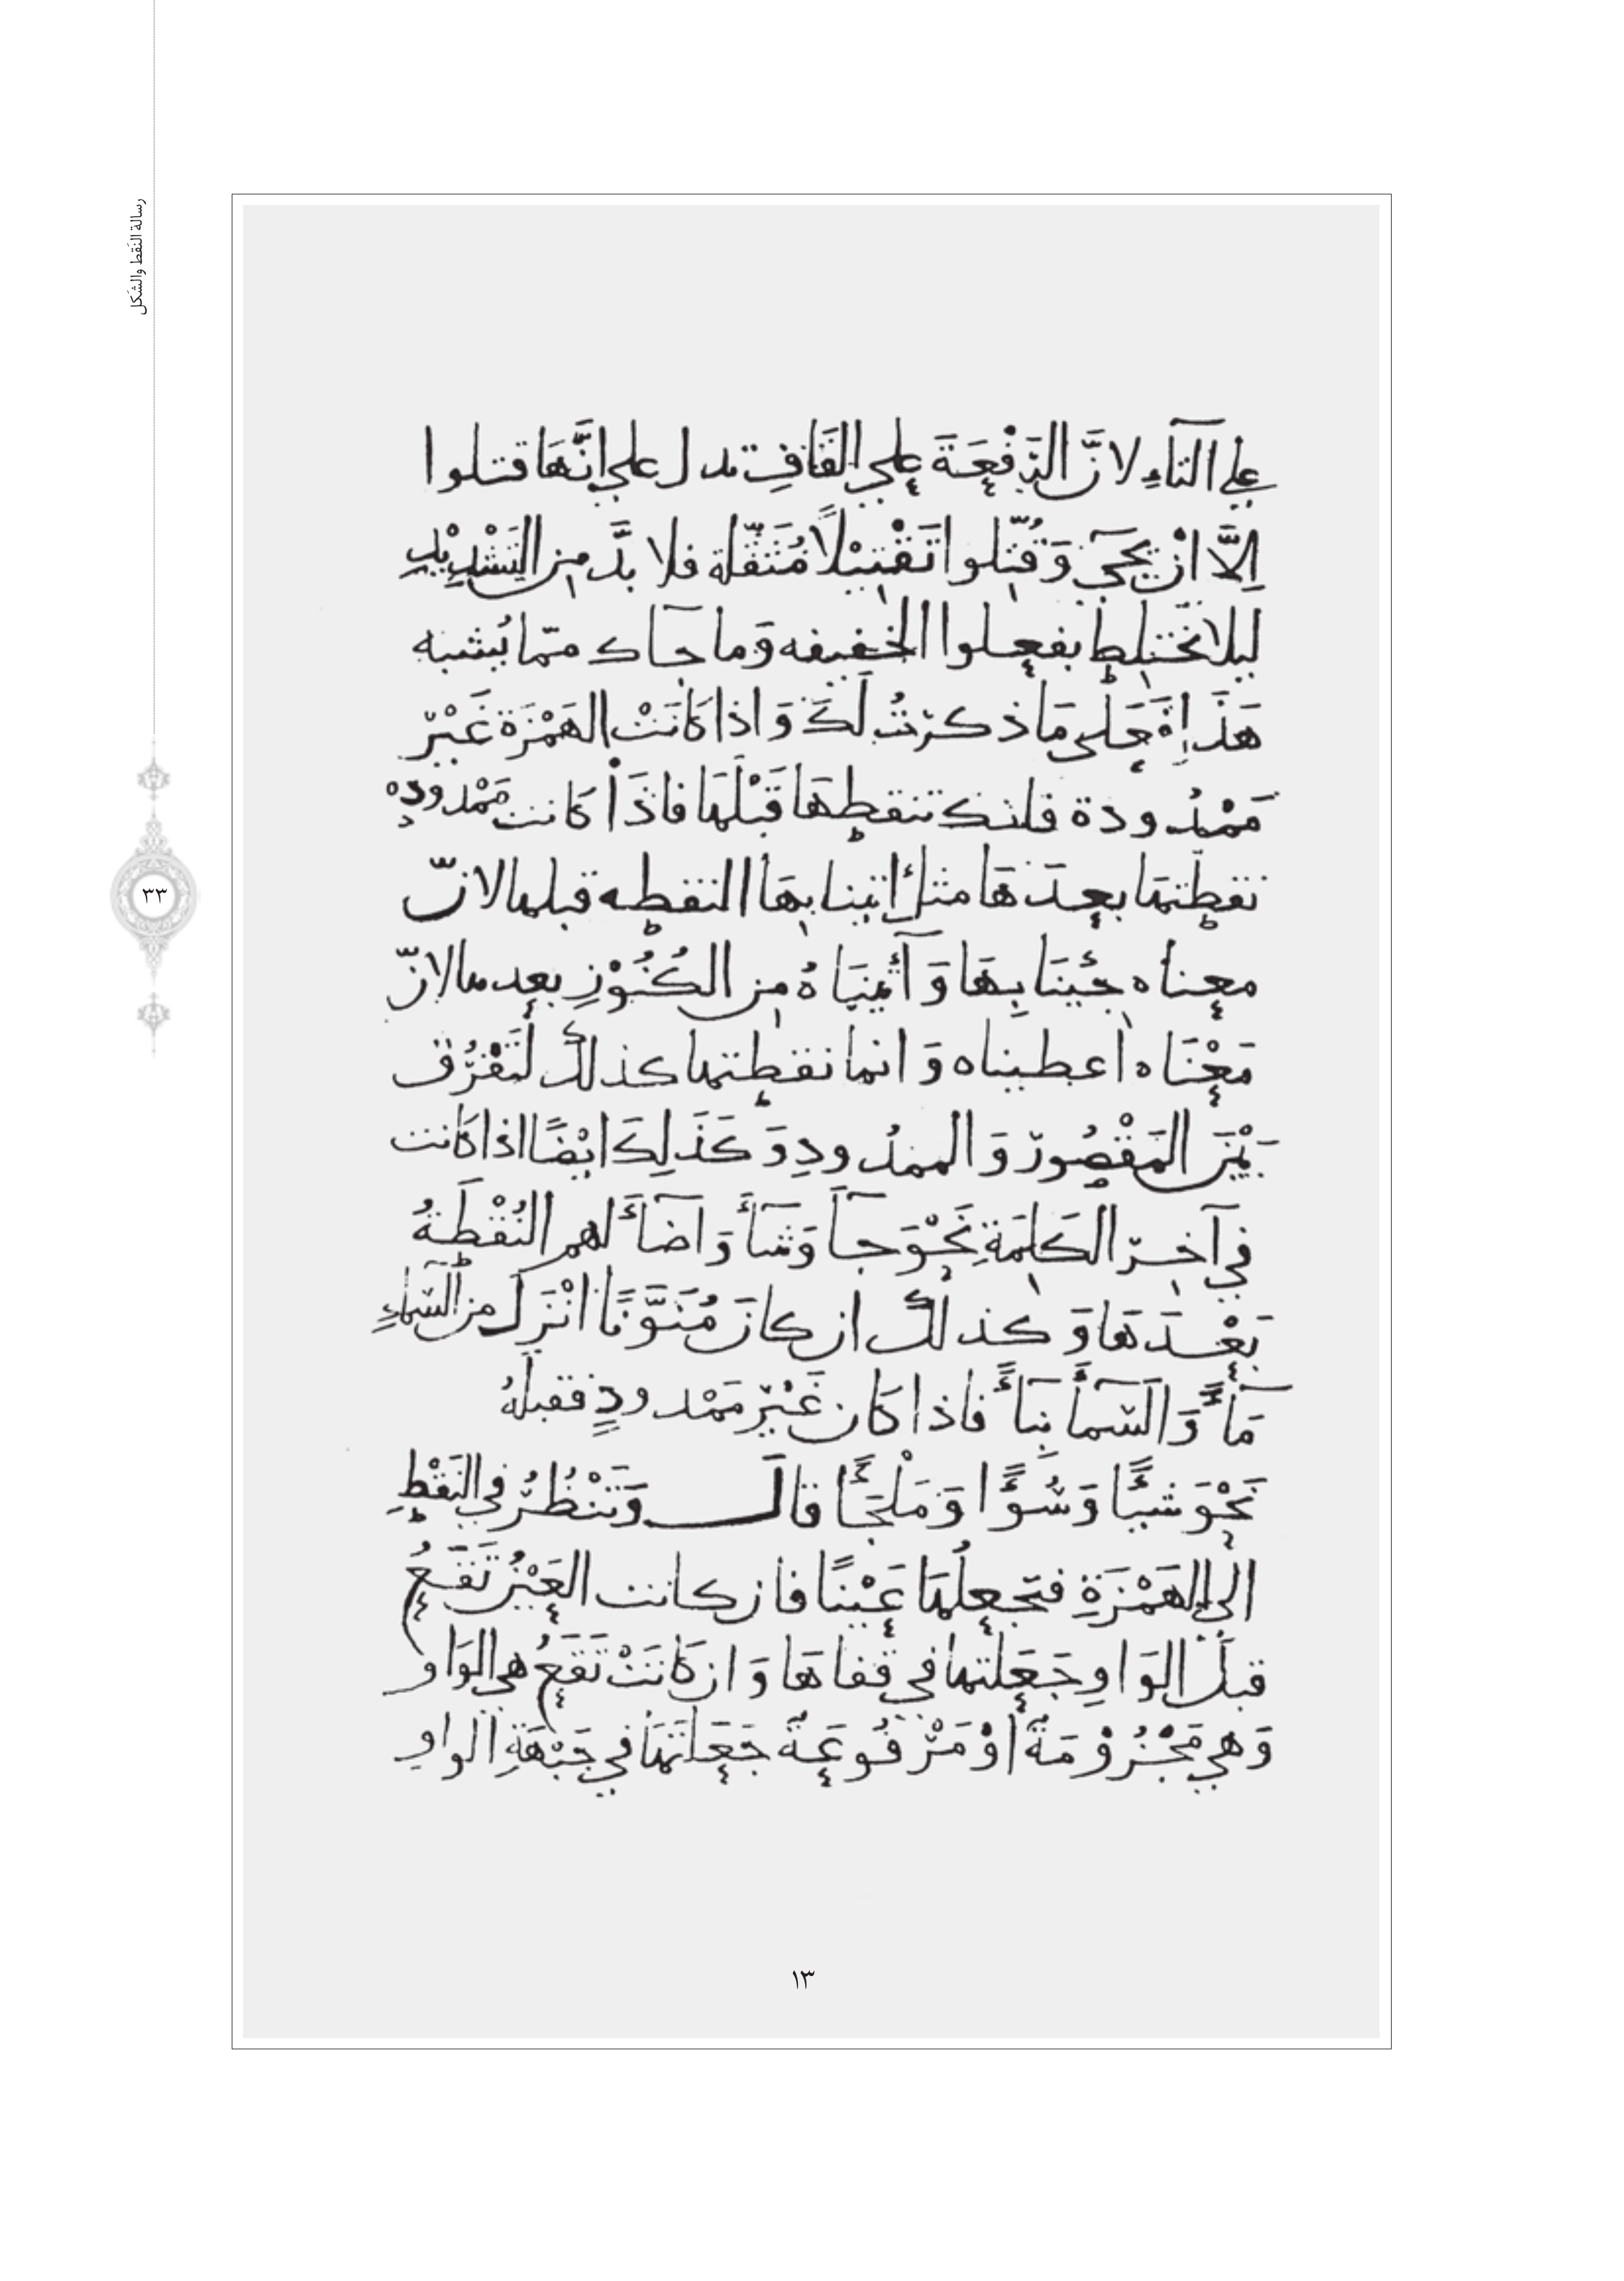 رسالة النقط والشكل
٣٣
على التاءِ لانَّ الرَّفْعَةَ على القَافِ تدل على انَّهَا قتلوا
اِلَّا انْ يجيَ وَقُتِّلوا تَقْتِيْلًا مُثَقَّلة فلا بدَّ مِن التَشْدِيْدِ
ليلا تختلِط بفعلوا الخفيفه وَما جآك ممّا يُشبه
هَذَا فَعَلى مَا ذكرْتُ لَكَ وَ اذا كَانَتْ الهَمْزَة غَيْرَ
مَمْدُودة فانك تنقطهَا قَبْلَهَا فاذَا كانت مَمْدودِه
نقطتها بعدَهَا مثل اتينا بِهَا النقطه قبلها لانّ
معناه جِئينَا بِهَا وَ آتَيْنَاهُ مِن الكُنُوْزِ بعدها لانّ
مَعْنَاه اعطيناه وَ انما نقطتها كذلك لتَفْرُق
بَيْنَ المَقْصُور وَ الممدُودِ وَكَذَلِكَ ايْضًا اذا كانت
في آخِر الكَلِمَةِ نَحْوَ جآ وَشآء وَ اضآء لهم النُقْطَةُ
بَعْدَهَا وَ كذلك ان كانَ مُنَوَّنًا انْزَلَ من السَّمآءِ
مَآءً وَ السَّمآءَ بِنآءً فاذا كان غَيْرَ مَمْدودٍ فقبلهُ
نَحْوَ شيئًا وَسُوًا وَ مَلْجَأً قالَ وَتَنْظُرُ في النَقْطِ
الى الهَمْزَةِ فتجعلُهَا عَيْنًا فان كانت العَيْن تَقَعُ
قبلَ الوَاوِ جَعَلتها في قفاهَا وَ ان كَانَتْ تَقَعُ هي الوَاو
وَهي مَجْزُوْمَة اوْ مَرْفُوعَة جَعَلتَهَا في جَبْهَةِ الواوِ
١٣